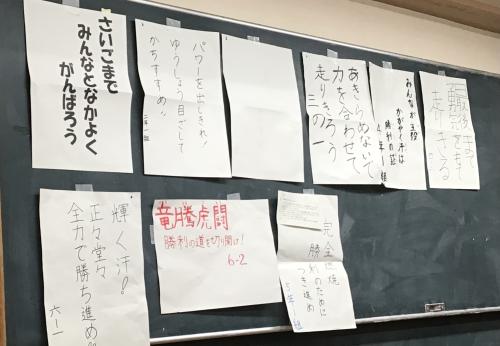 さいごまで
みんなとなかよく
がんばろう
パワーを出しきれ!
ゆうしょう目ざして
かちすすめ!!
二年一組
あきらめないで
力を合わせて
走りきろう
三の一
みんなが主役
かがやく汗は
勝利の証
4年1組
最後まで
走りきる
輝く汗!
正々堂々
全力で勝ち進め!!
六ー一
竜騰虎闘
勝利の道を切り開け!
6-2
完全燃焼
勝利のために
つき進め
5年1組